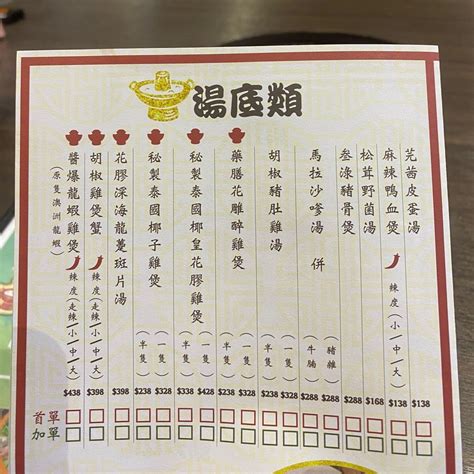 湯底類
芫茜皮蛋湯 $138
麻辣鴨血煲 辣度(走辣/小/中/大) $138
松茸野菌湯 $168
叁滋豬骨煲 $288
馬拉沙嗲湯 併 (豬雜) $288 (牛腩) $288
胡椒豬肚雞湯 (一隻) $328 (半隻) $238
藥膳花雕醉雞煲 (一隻) $328 (半隻) $238
秘製泰國椰皇花膠雞煲 (一隻) $428 (半隻) $338
秘製泰國椰子雞煲 (一隻) $328 (半隻) $238
花膠深海龍躉斑片湯 $398
胡椒雞煲蟹 辣度(走辣/小/中/大) $398
醬爆龍蝦雞煲 (原隻澳洲龍蝦) 辣度(走辣/小/中/大) $438
首單
加單